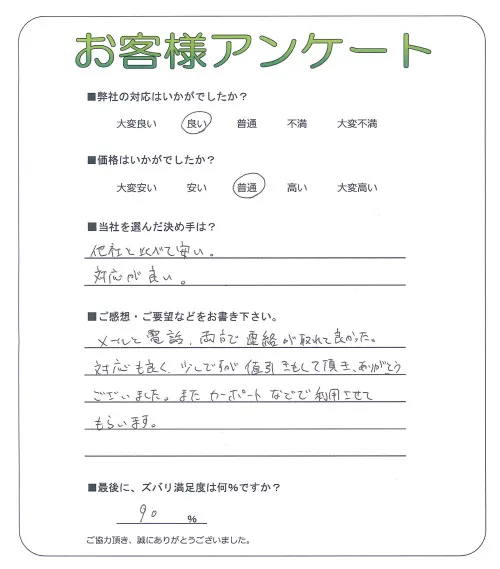 お客様アンケート
■弊社の対応はいかがでしたか？
大変良い 良い 普通 不満 大変不満
■価格はいかがでしたか？
大変安い 安い 普通 高い 大変高い
■当社を選んだ決め手は？
他社と比べて安い。
対応が良い。
■ご感想・ご要望などをお書き下さい。
メールと電話、両方で連絡が取れて良かった。
対応も良く、少しですが値引きもして頂き、ありがとう
ございました。またカーポートなどで利用させて
もらいます。
■最後に、ズバリ満足度は何％ですか？
90 ％
ご協力頂き、誠にありがとうございました。